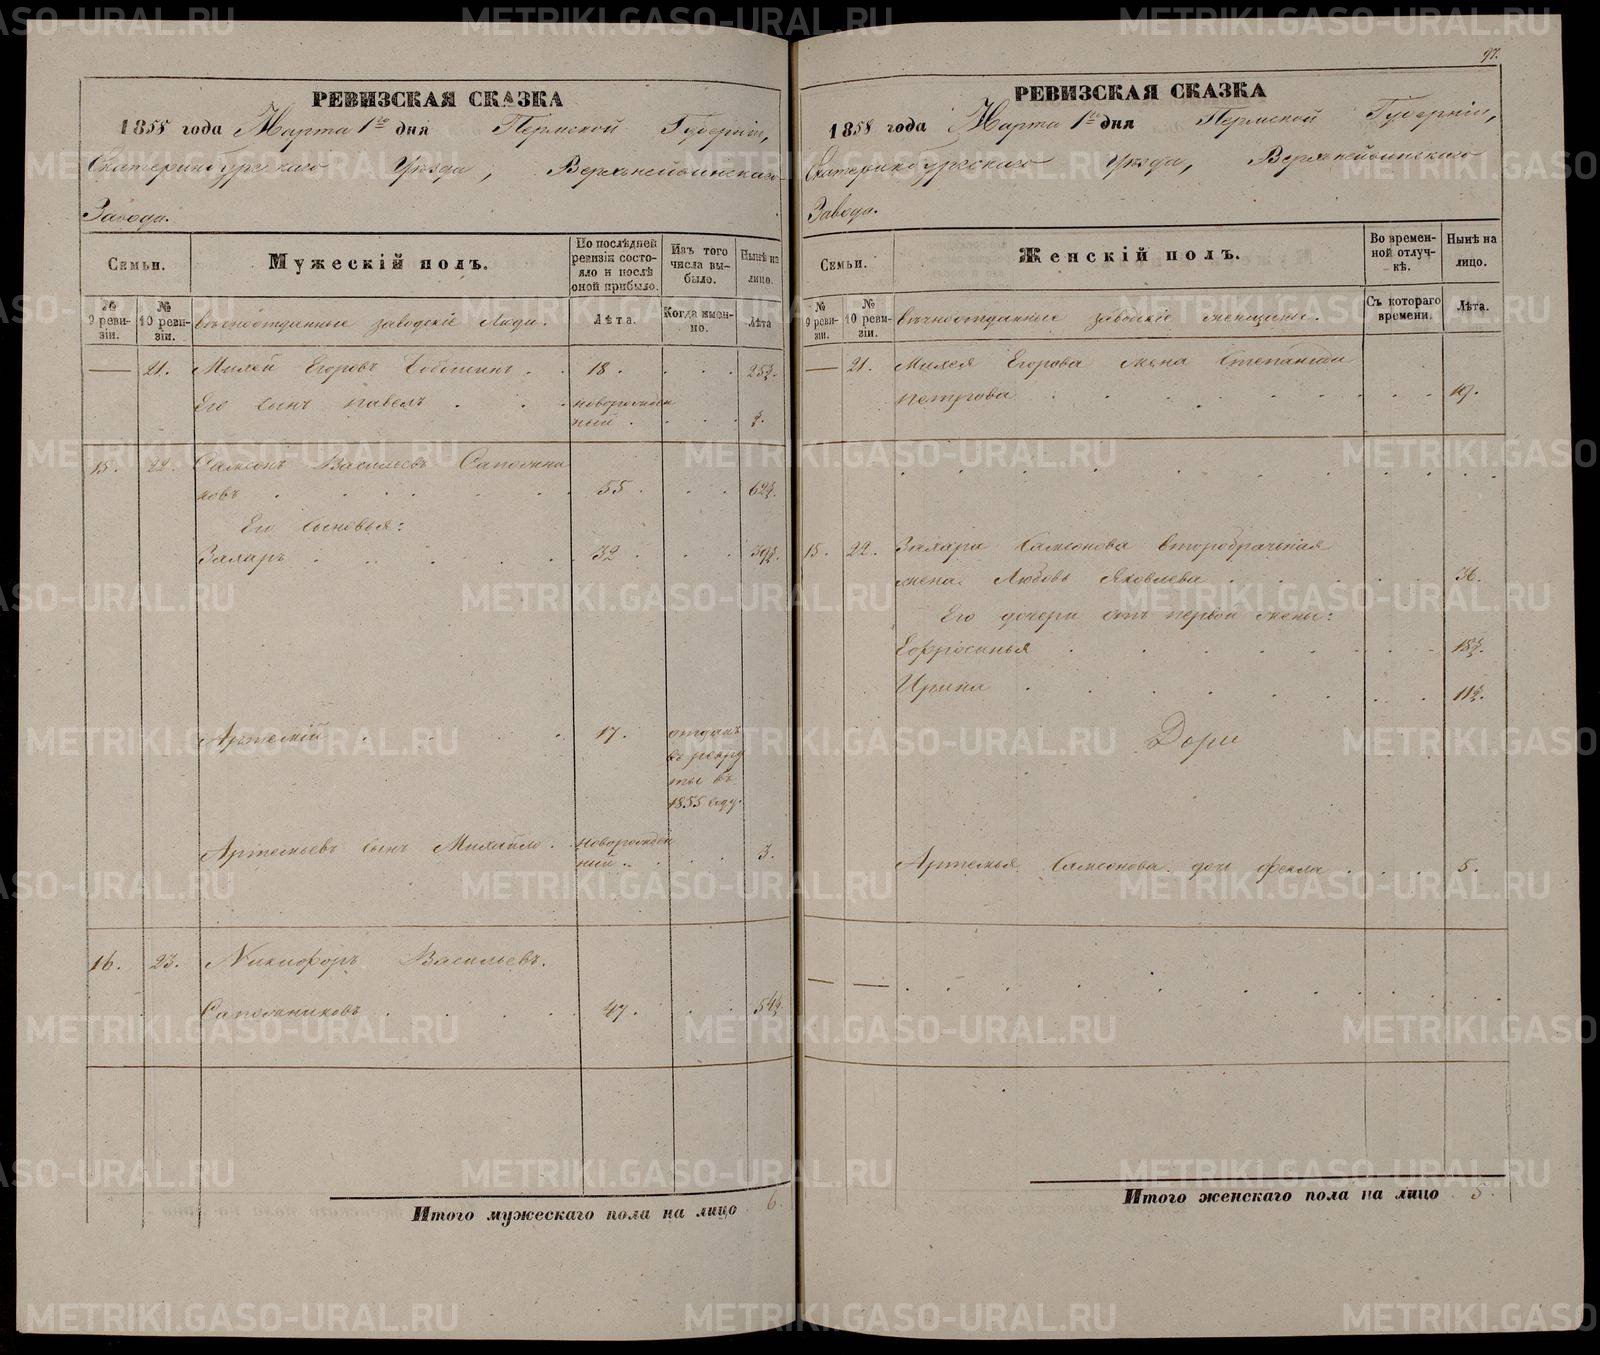 97.
РЕВИЗСКАЯ СКАЗКА
1858 года Марта 1го дня Пермской Губерніи,
Екатеринбургскаго Уѣзда, Верхнейвинскаго
Завода.
Семьи.
Мужескій полъ.
По послѣдней ревизіи состояло и послѣ оной прибыло.
Изъ того числа выбыло.
Нынѣ на лицо.
№ 9 ревизіи.
№ 10 ревизіи.
вѣчноотданные заводскіе люди.
Лѣта.
Когда именно.
Лѣта
— 21. Михей Егоровъ 18. 25½.
Его сынъ Павелъ новорожденный. ½.
15. 22. Самсонъ Васильевъ Сапожни
ковъ 55. 62½.
Его сыновья:
Захаръ 32. 39½.
Артемій 17. отданъ
въ рекру
ты въ
1855 году.
Артемьевъ сынъ Михайло. новорожден
ный. 3.
16. 23. Никифоръ Васильевъ.
Сапожниковъ 47. 54½.
Итого мужескаго пола на лицо 6.
РЕВИЗСКАЯ СКАЗКА
1858 года Марта 1го дня Пермской Губерніи,
Екатеринбургскаго Уѣзда, Верхнейвинскаго
Завода.
Семьи.
Женскій полъ.
Во временной отлучкѣ.
Нынѣ на лицо.
№ 9 ревизіи.
№ 10 ревизіи.
вѣчноотданные заводскіе женщины.
Съ котораго времени.
Лѣта.
— 21. Михея Егорова жена Степанида
Петрова 19.
15. 22. Захара Самсонова второбрачная
жена Любовь Яковлева 36.
Его дочери отъ первой жены:
Ефросинья 18½.
Ирина 11½.
Артемья Самсонова дочь Фекла 5.
— —
Итого женскаго пола на лицо 5.
METRIKI.GASO-URAL.RU